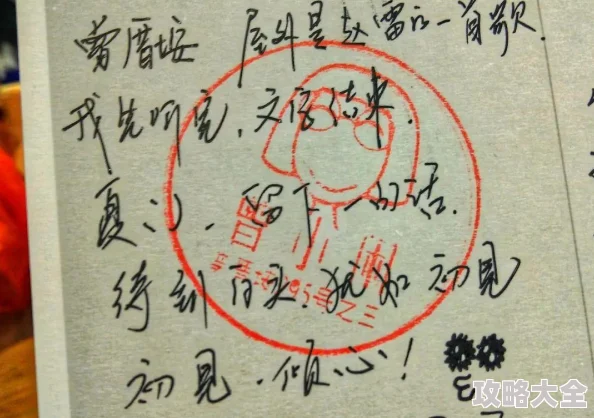 曾厝垵 屋外是赵雷的一首歌.
我先听完,文后结束.
夏心、留下一句话.
待到白头.犹如初见
初见.倾心!
曾小厨
曾厝垵95号之三
攻略大全